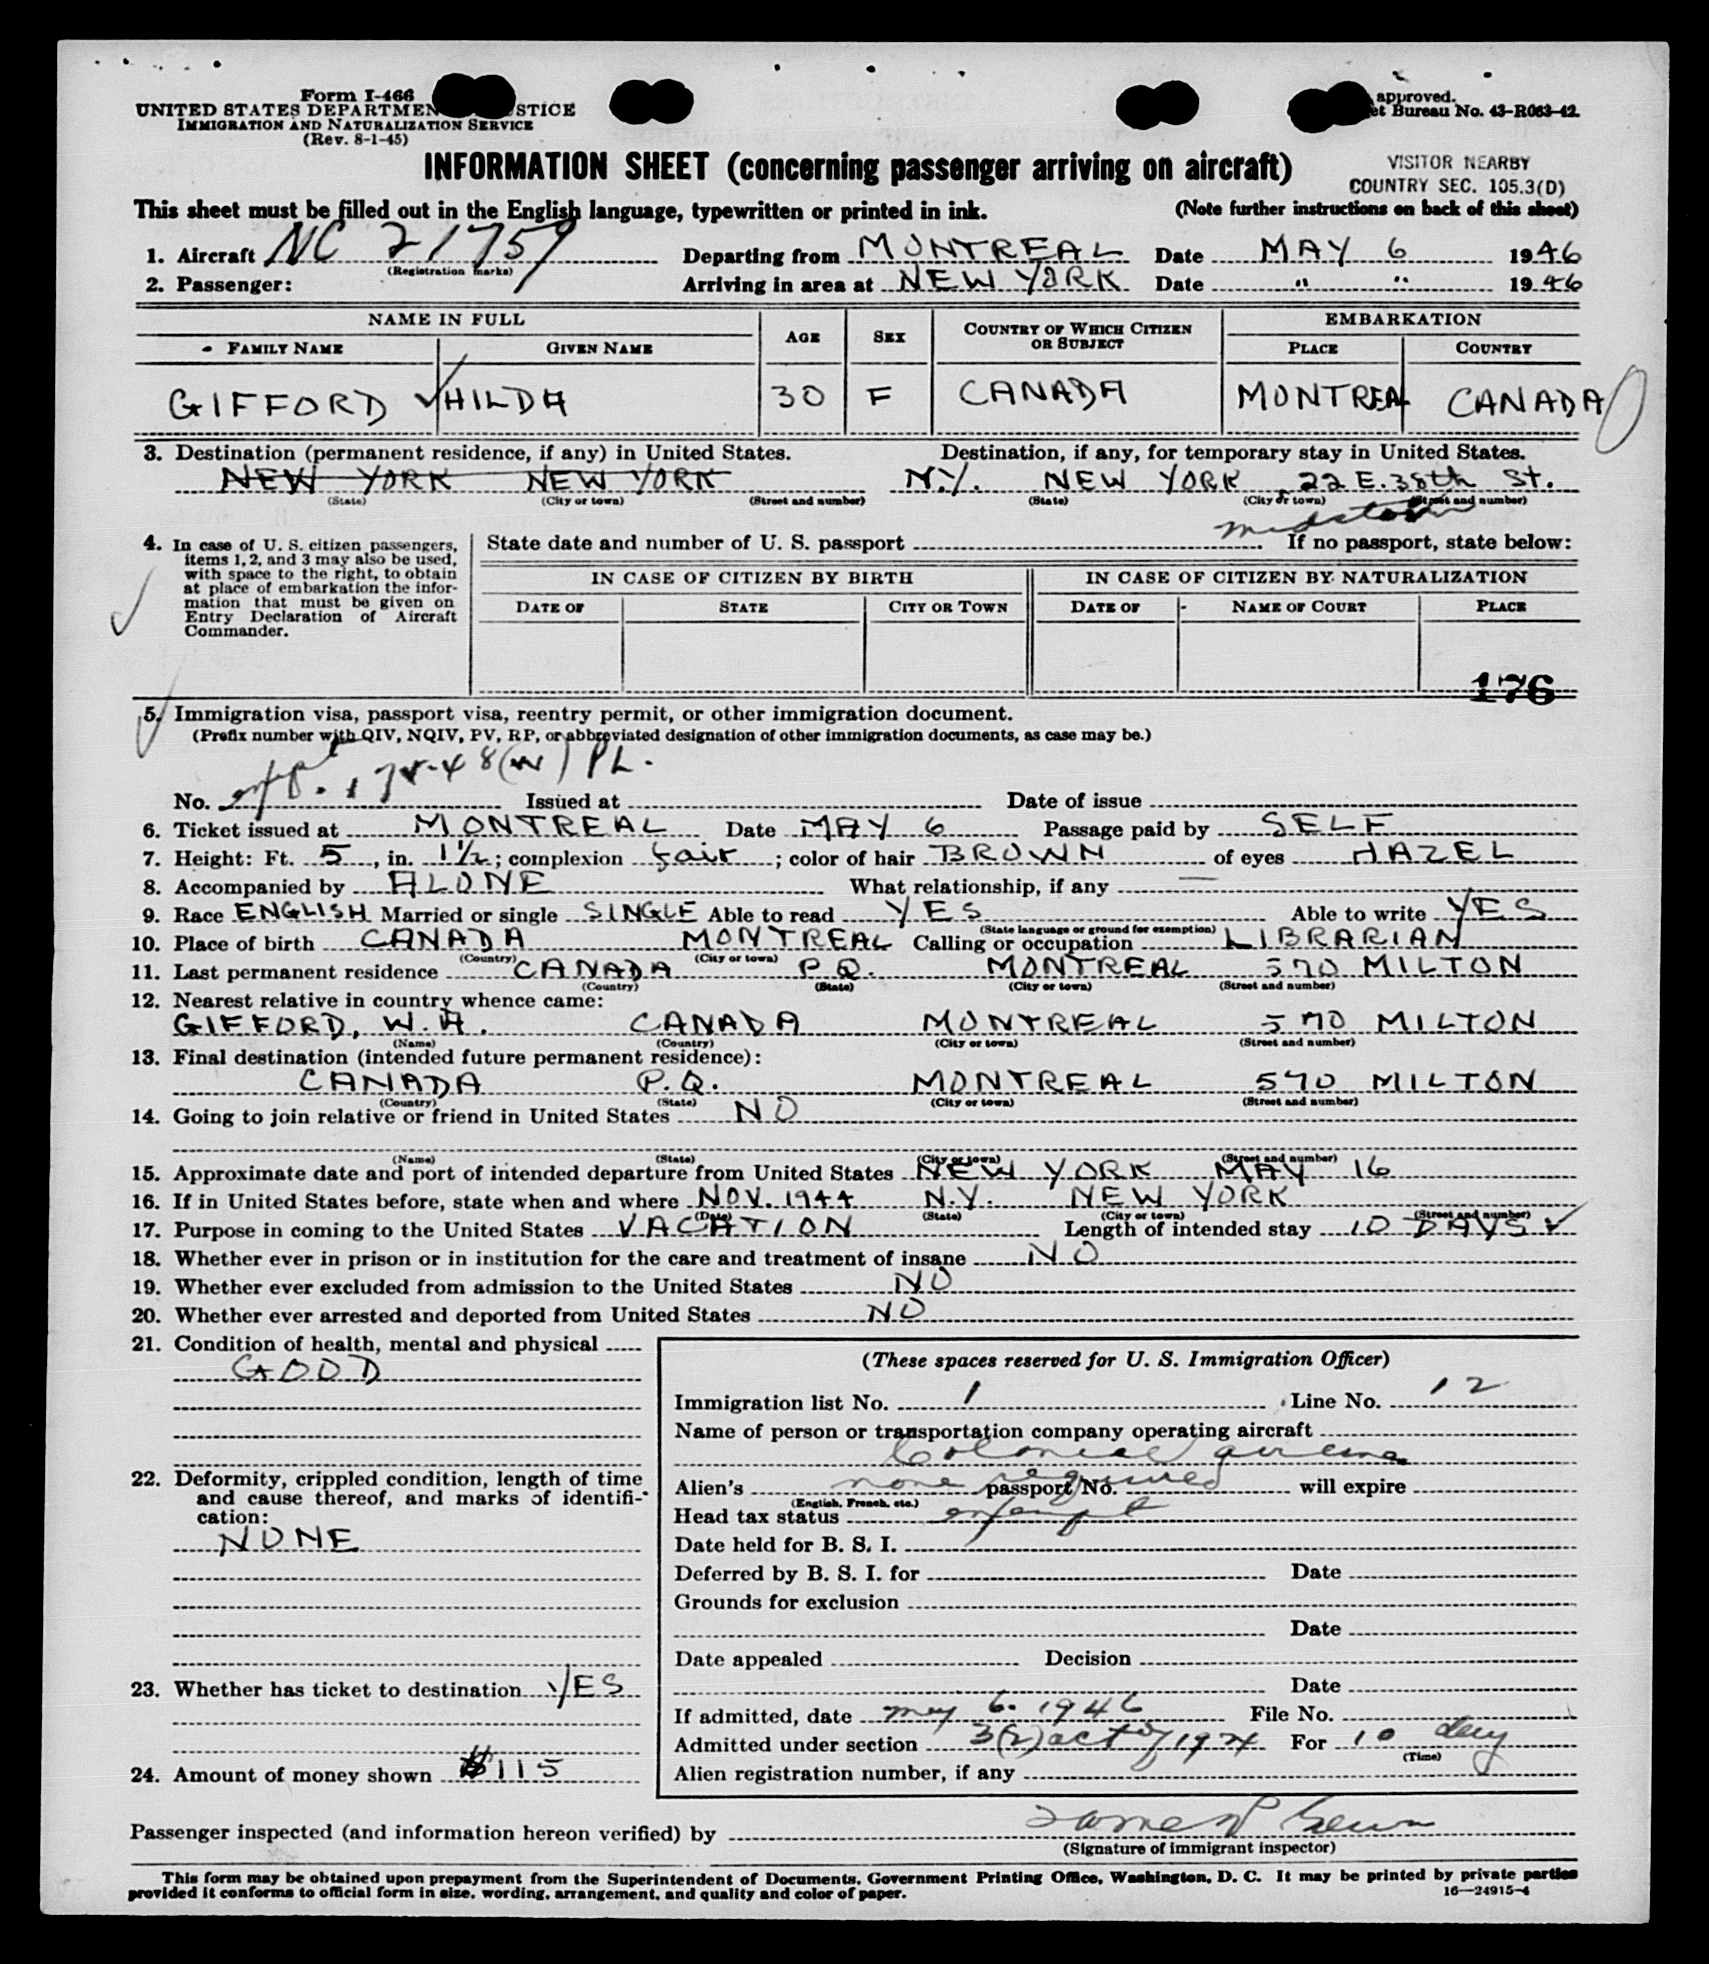 Form I-466
UNITED STATES DEPARTMEN STICE
IMMIGRATION AND NATURALIZATION SERVICE
(Rev. 8-1-45)
approved.
et Bureau No. 43-R063-42.
INFORMATION SHEET (concerning passenger arriving on aircraft)
VISITOR NEARBY
COUNTRY SEC. 105.3(D)
This sheet must be filled out in the English language, typewritten or printed in ink. (Note further instructions on back of this sheet)
1. Aircraft NC 21759 Departing from MONTREAL Date MAY 6 1946
(Registration marks)
2. Passenger: Arriving in area at NEW YORK Date " " 1946
NAME IN FULL AGE SEX COUNTRY OF WHICH CITIZEN OR SUBJECT EMBARKATION
FAMILY NAME GIVEN NAME PLACE COUNTRY
GIFFORD HILDA 30 F CANADA MONTREAL CANADA
3. Destination (permanent residence, if any) in United States. Destination, if any, for temporary stay in United States.
NEW YORK NEW YORK N.Y. NEW YORK 22 E. 38th St.
(State) (City or town) (Street and number) (State) (City or town) (Street and number)
4. In case of U. S. citizen passengers, items 1, 2, and 3 may also be used, with space to the right, to obtain at place of embarkation the information that must be given on Entry Declaration of Aircraft Commander.
State date and number of U. S. passport If no passport, state below:
IN CASE OF CITIZEN BY BIRTH IN CASE OF CITIZEN BY NATURALIZATION
DATE OF STATE CITY OR TOWN DATE OF NAME OF COURT PLACE
176
5. Immigration visa, passport visa, reentry permit, or other immigration document.
(Prefix number with QIV, NQIV, PV, RP, or abbreviated designation of other immigration documents, as case may be.)
No. Issued at Date of issue
6. Ticket issued at MONTREAL Date MAY 6 Passage paid by SELF
7. Height: Ft. 5, in. 1½; complexion fair; color of hair BROWN of eyes HAZEL
8. Accompanied by ALONE What relationship, if any —
9. Race ENGLISH Married or single SINGLE Able to read YES Able to write YES
(State language or ground for exemption)
10. Place of birth CANADA MONTREAL Calling or occupation LIBRARIAN
(Country) (City or town)
11. Last permanent residence CANADA P.Q. MONTREAL 570 MILTON
(Country) (State) (City or town) (Street and number)
12. Nearest relative in country whence came:
GIFFORD, W.A. CANADA MONTREAL 570 MILTON
(Name) (Country) (City or town) (Street and number)
13. Final destination (intended future permanent residence):
CANADA P.Q. MONTREAL 570 MILTON
(Country) (State) (City or town) (Street and number)
14. Going to join relative or friend in United States NO
(Name) (State) (City or town) (Street and number)
15. Approximate date and port of intended departure from United States NEW YORK MAY 16
16. If in United States before, state when and where NOV. 1944 N.Y. NEW YORK
(Date) (State) (City or town) (Street and number)
17. Purpose in coming to the United States VACATION Length of intended stay 10 DAYS
18. Whether ever in prison or in institution for the care and treatment of insane NO
19. Whether ever excluded from admission to the United States NO
20. Whether ever arrested and deported from United States NO
21. Condition of health, mental and physical
GOOD
22. Deformity, crippled condition, length of time and cause thereof, and marks of identification:
NONE
23. Whether has ticket to destination YES
24. Amount of money shown $115
(These spaces reserved for U. S. Immigration Officer)
Immigration list No. 1 Line No. 12
Name of person or transportation company operating aircraft
Colonial airlines
Alien's none required passport No. will expire
(English, French, etc.)
Head tax status exempt
Date held for B. S. I.
Deferred by B. S. I. for Date
Grounds for exclusion
Date
Date appealed Decision
Date
If admitted, date may 6. 1946 File No.
Admitted under section 3(2) act of 1924 For 10 days
(Time)
Alien registration number, if any
Passenger inspected (and information hereon verified) by
(Signature of immigrant inspector)
This form may be obtained upon prepayment from the Superintendent of Documents, Government Printing Office, Washington, D. C. It may be printed by private parties
provided it conforms to official form in size, wording, arrangement, and quality and color of paper.
16—24915-4